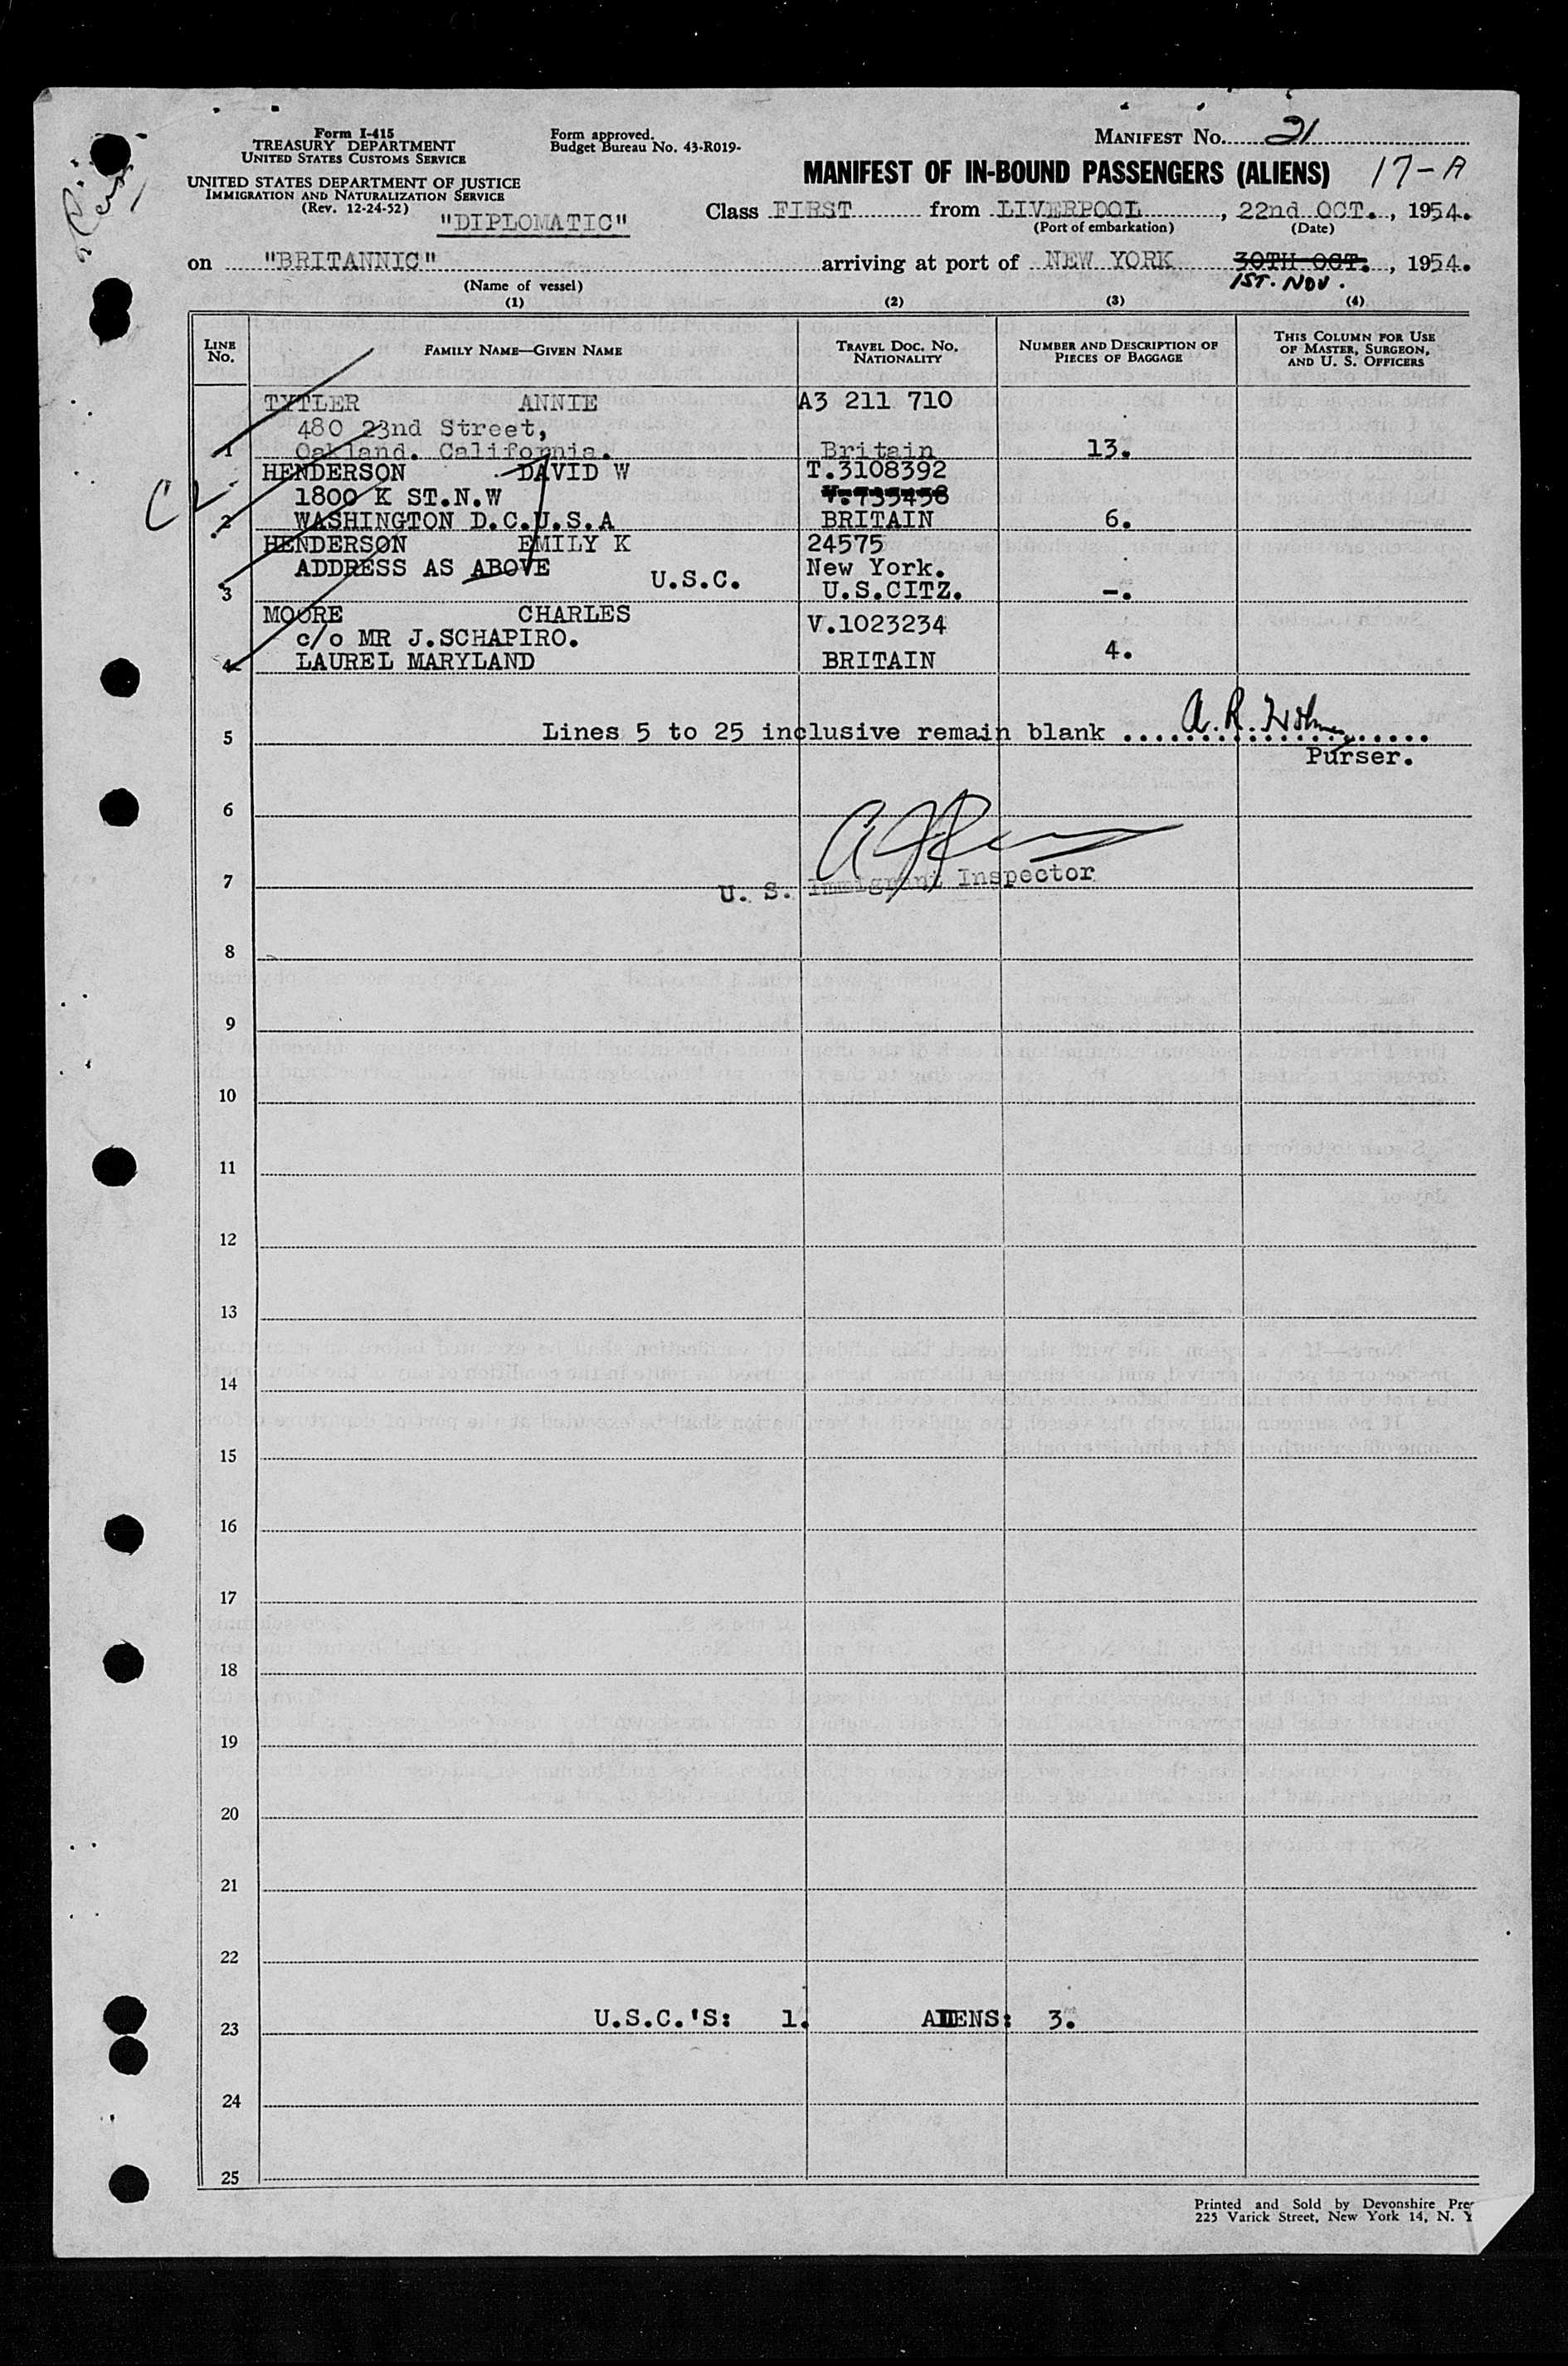 Form I-415
TREASURY DEPARTMENT
UNITED STATES CUSTOMS SERVICE
UNITED STATES DEPARTMENT OF JUSTICE
IMMIGRATION AND NATURALIZATION SERVICE
(Rev. 12-24-52)
Form approved.
Budget Bureau No. 43-R019-
MANIFEST NO. 21
MANIFEST OF IN-BOUND PASSENGERS (ALIENS) 17-A
"DIPLOMATIC"
Class FIRST from LIVERPOOL, 22nd OCT., 1954.
(Port of embarkation) (Date)
on "BRITANNIC" arriving at port of NEW YORK 30TH OCT., 1954.
1ST. NOV.
(Name of vessel)
(1) (2) (3) (4)
LINE NO. FAMILY NAME—GIVEN NAME TRAVEL DOC. NO. NATIONALITY NUMBER AND DESCRIPTION OF PIECES OF BAGGAGE THIS COLUMN FOR USE OF MASTER, SURGEON, AND U. S. OFFICERS
TYTLER ANNIE A3 211 710
480 23nd Street,
1 Oakland. California. Britain 13.
HENDERSON DAVID W T.3108392
1800 K ST.N.W V.735458
2 WASHINGTON D.C.U.S.A BRITAIN 6.
HENDERSON EMILY K 24575
ADDRESS AS ABOVE New York.
3 U.S.C. U.S.CITZ. -.
MOORE CHARLES V.1023234
c/o MR J.SCHAPIRO.
4 LAUREL MARYLAND BRITAIN 4.
5 Lines 5 to 25 inclusive remain blank A. R.
Purser.
6
7 U. S. Immigrant Inspector
8
9
10
11
12
13
14
15
16
17
18
19
20
21
22
23 U.S.C.'S: 1. ALIENS: 3.
24
25
Printed and Sold by Devonshire
225 Varick Street, New York 14, N. Y